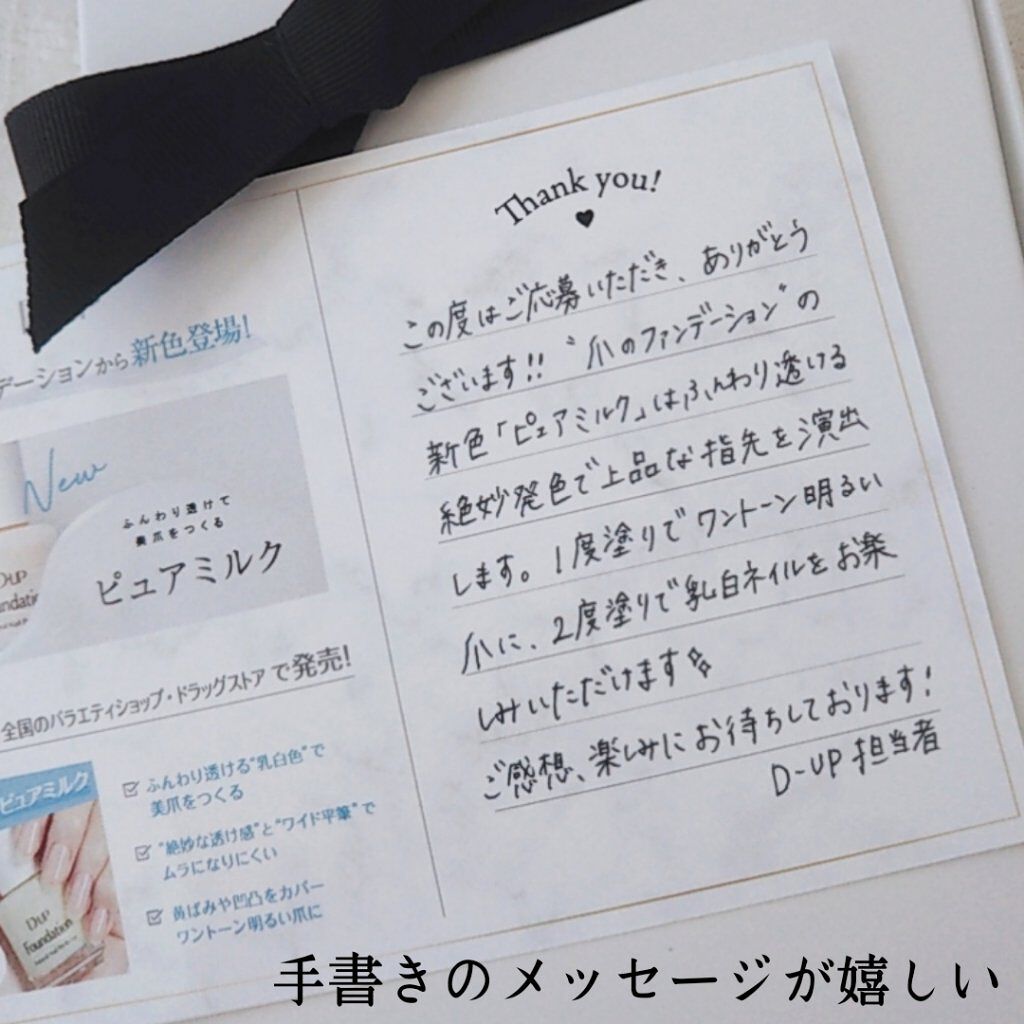 デーションから新色登場!
New
ふんわり透けて
美爪をつくる
ピュアミルク
D-UP
全国のバラエティショップ・ドラッグストアで発売!
ピュアミルク
ふんわり透ける"乳白色"で
美爪をつくる
"絶妙な透け感"と"ワイド平筆"で
ムラになりにくい
黄ばみや凹凸をカバー
ワントーン明るい爪に
D-UP
Foundation
Thank you!
この度はご応募いただき、ありがとう
ございます!! "爪のファンデーション"の
新色「ピュアミルク」はふんわり透ける
絶妙発色で上品な指先を演出
します。1度塗りでワントーン明るい
爪に、2度塗りで乳白ネイルをお楽
しみいただけます
ご感想、楽しみにお待ちしております!
D-UP 担当者
手書きのメッセージが嬉しい